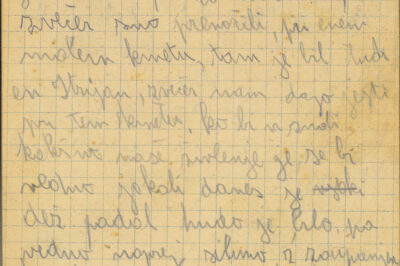 zvičer smo prenočili, pri enem
malem kmetu, tam je bil tudi
en Istrijan, zvičer nam dajo jesti
pri tem kmetu, ko bi vi
kakšno naše je se bi
vedno jokali danes je
dež padal hudo je bilo, pa
vedno naprej silimo z zaupanjem